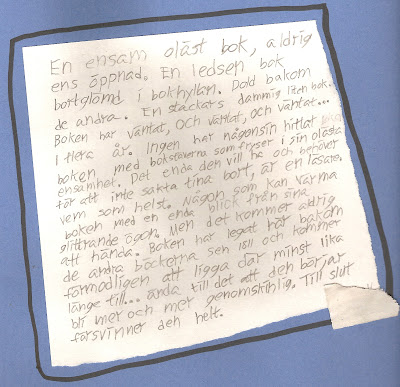 En ensam oläst bok, aldrig
ens öppnad. En ledsen bok
bortglömd i bokhyllan. Dold bakom
de andra. En stackars dammig liten bok.
Boken har väntat, och väntat, och väntat...
i flera år. Ingen har någonsin hittat
boken med bokstäverna som fryser i sin olästa
ensamhet. Det enda den vill ha och behöver
för att inte sakta tina bort, är en läsare.
vem som helst. Någon som kan värma
boken med en enda blick från sina
glittrande ögon. Men det kommer aldrig
att hända. Boken har legat här bakom
de andra böckerna sen och kommer
förmodligen att ligga där minst lika
länge till... ända till det att den börjar
bli mer och mer genomskinlig. Till slut
försvinner den helt.